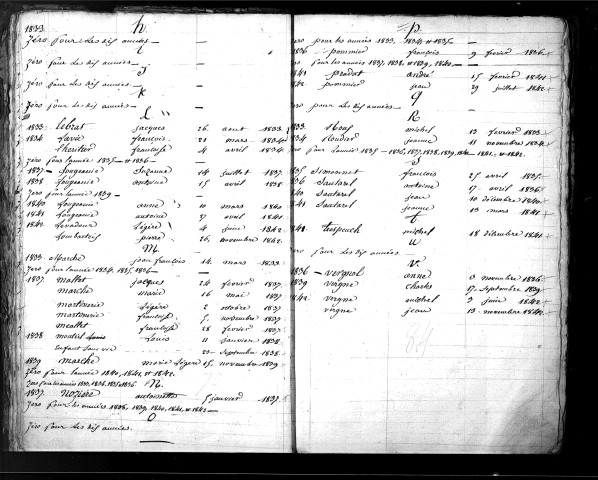 1833 h
Zéro pour les dix années
i
Zéro pour les dix années
J
Zéro pour les dix années
K
Zéro pour les dix années
L
1833 Lebrat jacques 26 aout 1833
1834 Lavie françois 21 mars 1834
Lheritier françois 4 avril 1834
Zéro pour l'année 1835 et 1836
1837 fougeanie Suzanne 14 juillet 1837
1838 fougeanie antoine 15 avril 1838
Zéro pour l'année 1839
1840 fougeanie anne 10 mars 1840
1841 fougeanie antoine 27 avril 1841
1842 Levadour Légère 4 juin 1842
Lombarteix pierre 26 novembre 1842
M
1833 Marche jean françois 14 mars 1833
Zéro pour l'année 1834, 1835, 1836
1837 mallet jacques 24 fevrier 1837
marche marie 16 mai 1837
martinerie Légère 2 octobre 1837
martinerie françoise 5 novembre 1837
meallet françoise 28 fevrier 1837
1838 Louis 11 janvier 1838
Enfant sans vie 23 Septembre 1838
1839 marche marie Légère 15 novembre 1839
Zéro pour l'année 1840, 1841, et 1842
N
1837 Noziere antoinette 5 janvier 1837
Zéro pour les années 1838, 1839, 1840, 1841, et 1842
O
Zéro pour les dix années.
P
Zéro pour les années 1833, 1834, et 1835
1836 pommier françois 9 fevrier 1836
Zéro pour les années 1837, 1838, et 1839, 1840
1841 pradat andré 15 fevrier 1841
1842 pommier jean 29 juillet 1842
Q
Zéro pour les dix années
R
1833 michel 13 fevrier 1833
1834 Roudier jeanne 11 novembre 1834
S
1835 Simonnet françois 25 avril 1835
1836 Sautarel antoine 17 avril 1836
1840 Sautarel jean 10 décembre 1840
1841 Sautarel jeanne 13 mars 1841
t
1841 michel 18 décembre 1841
u
Zéro pour les dix années
V
1836 Vergnol anne 3 novembre 1836
1839 Vergne charles 17 Septembre 1839
1842 Vergne michel 3 juin 1842
Vergne jean 13 novembre 1842